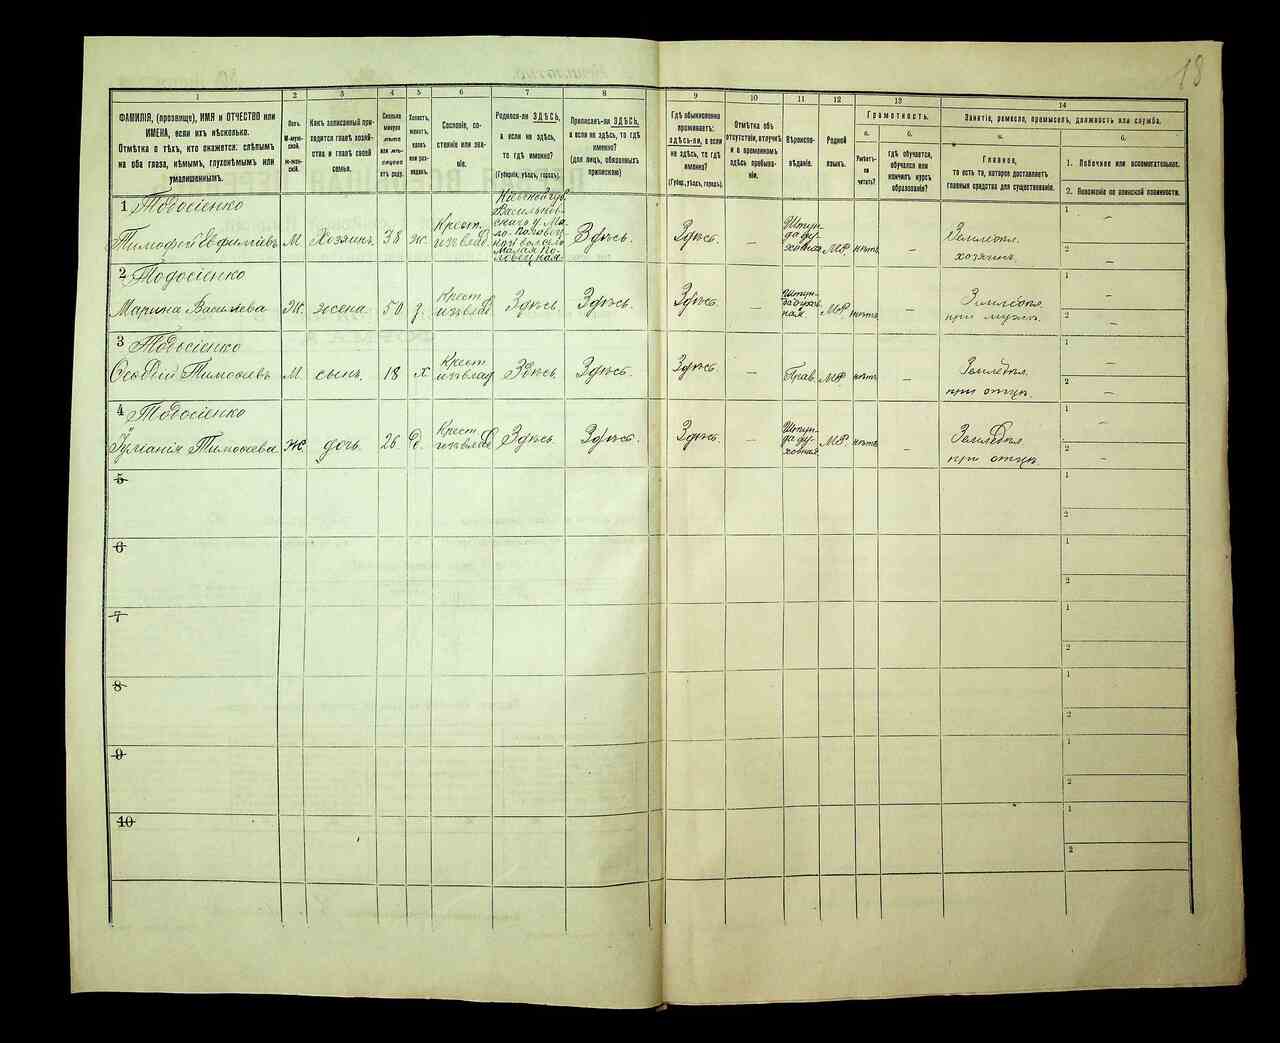 18
1 2 3 4 5 6 7 8 9 10 11 12 13 14
ФАМИЛІЯ, (прозвище), ИМЯ и ОТЧЕСТВО или
ИМЕНА, если ихъ нѣсколько.
Отмѣтка о тѣхъ, кто окажется: слѣпымъ
на оба глаза, нѣмымъ, глухонѣмымъ или
умалишеннымъ.
Полъ.
М-муж-
ской.
Ж-жен-
скій.
Какъ записанный при-
ходится главѣ хозяй-
ства и главѣ своей
семьи.
Сколько
минуло
лѣтъ
или мѣ-
сяцевъ
отъ роду.
Холостъ,
женатъ,
вдовъ
или раз-
веденъ.
Сословіе, со-
стояніе или зва-
ніе.
Родился-ли ЗДѢСЬ,
а если не здѣсь,
то гдѣ именно?
(Губернія, уѣздъ, городъ).
Приписанъ-ли ЗДѢСЬ,
а если не здѣсь, то гдѣ
именно?
(для лицъ, обязанныхъ
припискою)
Гдѣ обыкновенно
проживаетъ:
здѣсь-ли, а если
не здѣсь, то гдѣ
именно?
(Губер., уѣздъ, городъ).
Отмѣтка объ
отсутствіи, отлучкѣ
и о временномъ
здѣсь пребыва-
ніи.
Вѣроиспо-
вѣданіе.
Родной
языкъ.
Грамотность.
а. б.
Умѣетъ-
ли
читать?
гдѣ обучается,
обучался или
кончилъ курсъ
образованія?
Занятіе, ремесло, промыселъ, должность или служба.
а. б.
Главное,
то есть то, которое доставляетъ
главныя средства для существованія.
1. Побочное или вспомогательное.
2. Положеніе по воинской повинности.
1 Тодосіенко
Тимофей Евфиміевъ М. Хозяинъ 38 ж. Крест. Здѣсь. Здѣсь. — нѣтъ —
хозяинъ.
1 —
2 —
2 Тодосіенко
Марина Василіева Ж. жена 50 Крест Здѣсь Здѣсь. Здѣсь. — нѣтъ —
при мужѣ.
1 —
2 —
3 Тодосіенко
М. сынъ. 18 х Крест Здѣсь. Здѣсь. Здѣсь. — Прав. нѣтъ —
при отцѣ.
1
2 —
4 Тодосіенко
Ж. дочь. 26 Крест Здѣсь. Здѣсь. Здѣсь. — нѣтъ —
при отцѣ.
1 —
2 —
5
1
2
6
1
2
7
1
2
8
1
2
9
1
2
10
1
2